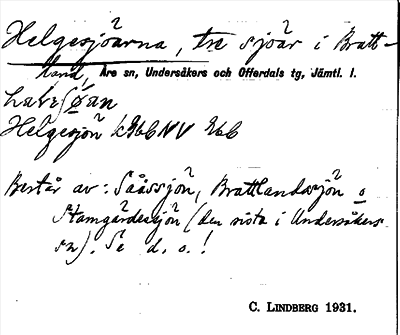 Helgesjöarna, tre sjöar i Bratt-
land, Åre sn, Undersåkers och Offerdals tg, Jämtl. l.
Helgesjön
Består av: Sååssjön, Brattlandssjön o
Stamgärdessjön (den sista i Undersåkers
sn). Se d. o.!
C. LINDBERG 1931.